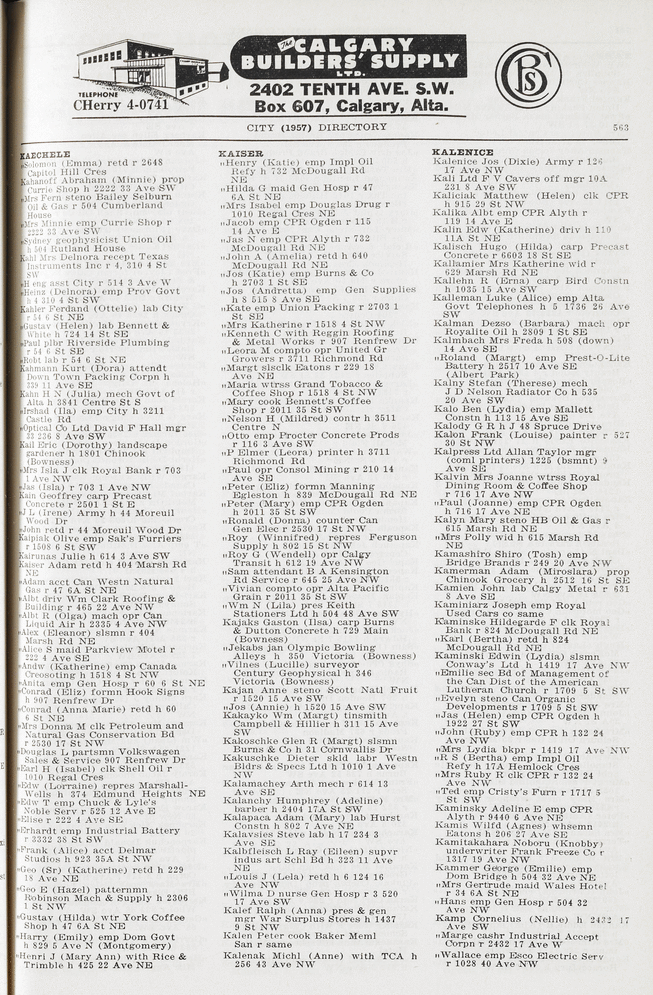 The CALGARY
BUILDERS' SUPPLY
LTD.
TELEPHONE
CHerry 4-0741
2402 TENTH AVE. S.W.
Box 607, Calgary, Alta.
CBS
CITY (1957) DIRECTORY
563
KAECHELE
"Solomon (Emma) retd r 2648
Capitol Hill Cres
Kahanoff Abraham (Minnie) prop
Currie Shop h 2222 33 Ave SW
"Mrs Fern steno Bailey Selburn
Oil & Gas r 504 Cumberland
House
"Mrs Minnie emp Currie Shop r
2222 33 Ave SW
"Sydney geophysicist Union Oil
h 504 Rutland House
Kahl Mrs Delnora recept Texas
Instruments Inc r 4, 310 4 St
SW
"H eng asst City r 514 3 Ave W
"Heinz (Delnora) emp Prov Govt
h 4 310 4 St SW
Kahler Ferdand (Ottelie) lab City
r 54 6 St NE
"Gustav (Helen) lab Bennett &
White h 724 14 St SE
"Paul plbr Riverside Plumbing
r 54 6 St SE
"Robt lab r 54 6 St NE
Kahmann Kurt (Dora) attendt
Down Town Packing Corpn h
339 11 Ave SE
Kahn H N (Julia) mech Govt of
Alta h 3841 Centre St S
"Irshad (Ila) emp City h 3211
Castle Rd
"Optical Co Ltd David F Hall mgr
33 236 8 Ave SW
Kail Eric (Dorothy) landscape
gardener h 1801 Chinook
(Bowness)
"Mrs Isla J clk Royal Bank r 703
1 Ave NW
"Jas (Isla) r 703 1 Ave NW
Kain Geoffrey carp Precast
Concrete r 2501 1 St E
"J L (Irene) Army h 44 Moreuil
Wood Dr
"John retd r 44 Moreuil Wood Dr
Kaipiak Olive emp Sak's Furriers
r 1508 6 St SW
Kairunas Julie h 614 3 Ave SW
Kaiser Adam retd h 404 Marsh Rd
NE
"Adam acct Can Westn Natural
Gas r 47 6A St NE
"Albt driv Wm Clark Roofing &
Building r 465 22 Ave NW
"Albt R (Olga) mach opr Can
Liquid Air h 2335 4 Ave NW
"Alex (Eleanor) slsmn r 404
Marsh Rd NE
"Alice S maid Parkview Motel r
222 4 Ave SE
"Andw (Katherine) emp Canada
Creosoting h 1518 4 St NW
"Anita emp Gen Hosp r 60 6 St NE
"Conrad (Eliz) formn Hook Signs
h 907 Renfrew Dr
"Conrad (Anna Marie) retd h 60
6 St NE
"Mrs Donna M clk Petroleum and
Natural Gas Conservation Bd
r 2530 17 St NW
"Douglas L partsmn Volkswagen
Sales & Service 907 Renfrew Dr
"Earl H (Isabel) clk Shell Oil r
1010 Regal Cres
"Edw (Lorraine) repres Marshall-
Wells h 374 Edmund Heights NE
"Edw T emp Chuck & Lyle's
Noble Serv r 525 12 Ave E
"Elise r 222 4 Ave SE
"Erhardt emp Industrial Battery
r 3332 38 St SW
"Frank (Alice) acct Delmar
Studios h 923 35A St NW
"Geo (Sr) (Katherine) retd h 229
18 Ave NE
"Geo E (Hazel) patternmn
Robinson Mach & Supply h 2306
1 St NW
"Gustav (Hilda) wtr York Coffee
Shop h 47 6A St NE
"Harry (Emily) emp Dom Govt
h 829 5 Ave N (Montgomery)
"Henri J (Mary Ann) with Rice &
Trimble h 425 22 Ave NE
KAISER
"Henry (Katie) emp Impl Oil
Refy h 732 McDougall Rd
NE
"Hilda G maid Gen Hosp r 47
6A St NE
"Mrs Isabel emp Douglas Drug r
1010 Regal Cres NE
"Jacob emp CPR Ogden r 115
14 Ave E
"Jas N emp CPR Alyth r 732
McDougall Rd NE
"John A (Amelia) retd h 640
McDougall Rd NE
"Jos (Katie) emp Burns & Co
h 2703 1 St SE
"Jos (Andretta) emp Gen Supplies
h 8 515 8 Ave SE
"Kate emp Union Packing r 2703 1
St SE
"Mrs Katherine r 1518 4 St NW
"Kenneth C with Reggin Roofing
& Metal Works r 907 Renfrew Dr
"Leora M compto opr United Gr
Growers r 3711 Richmond Rd
"Margt slsclk Eatons r 229 18
Ave NE
"Maria wtrss Grand Tobacco &
Coffee Shop r 1518 4 St NW
"Mary cook Bennett's Coffee
Shop r 2011 35 St SW
"Nelson H (Mildred) contr h 3511
Centre N
"Otto emp Procter Concrete Prods
r 116 3 Ave SW
"P Elmer (Leora) printer h 3711
Richmond Rd
"Paul opr Consol Mining r 210 14
Ave SE
"Peter (Eliz) formn Manning
Egleston h 839 McDougall Rd NE
"Peter (Mary) emp CPR Ogden
h 2011 35 St SW
"Ronald (Donna) counter Can
Gen Elec r 2530 17 St NW
"Roy (Winnifred) repres Ferguson
Supply h 802 15 St NW
"Roy G (Wendell) opr Calgy
Transit h 612 19 Ave NW
"Sam attendant B A Kensington
Rd Service r 645 25 Ave NW
"Vivian compto opr Alta Pacific
Grain r 2011 35 St SW
"Wm N (Lila) pres Keith
Stationers Ltd h 504 48 Ave SW
Kajaks Gaston (Ilsa) carp Burns
& Dutton Concrete h 729 Main
(Bowness)
"Jekabs jan Olympic Bowling
Alleys h 350 Victoria (Bowness)
"Vilnes (Lucille) surveyor
Century Geophysical h 346
Victoria (Bowness)
Kajan Anne steno Scott Natl Fruit
r 1520 15 Ave SW
"Jos (Annie) h 1520 15 Ave SW
Kakayko Wm (Margt) tinsmith
Campbell & Hillier h 311 15 Ave
SW
Kakoschke Glen R (Margt) slsmn
Burns & Co h 31 Cornwallis Dr
Kakuschke Dieter skld labr Westn
Bldrs & Specs Ltd h 1010 1 Ave
NW
Kalamachey Arth mech r 614 13
Ave SE
Kalanchy Humphrey (Adeline)
barber h 2404 17A St SW
Kalapaca Adam (Mary) lab Hurst
Constn h 802 7 Ave NE
Kalavsies Steve lab h 17 234 3
Ave SE
Kalbfleisch L Ray (Eileen) supvr
indus art Schl Bd h 323 11 Ave
NE
"Louis J (Lela) retd h 6 124 16
Ave NW
"Wilma D nurse Gen Hosp r 3 520
17 Ave SW
Kalef Ralph (Anna) pres & gen
mgr War Surplus Stores h 1437
9 St NW
Kalen Peter cook Baker Meml
San r same
Kalenak Michl (Anne) with TCA h
256 43 Ave NW
KALENICE
Kalenice Jos (Dixie) Army r 126
17 Ave NW
Kali Ltd F V Cavers off mgr 10A
231 8 Ave SW
Kaliciak Matthew (Helen) clk CPR
h 915 29 St NW
Kalika Albt emp CPR Alyth r
119 14 Ave E
Kalin Edw (Katherine) driv h 110
11A St NE
Kalisch Hugo (Hilda) carp Precast
Concrete r 6603 18 St SE
Kallamier Mrs Katherine wid r
629 Marsh Rd NE
Kallehn R (Erna) carp Bird Constn
h 1035 15 Ave SW
Kalleman Luke (Alice) emp Alta
Govt Telephones h 5 1736 26 Ave
SW
Kalman Dezso (Barbara) mach opr
Royalite Oil h 2809 1 St SE
Kalmbach Mrs Freda h 508 (down)
14 Ave SE
"Roland (Margt) emp Prest-O-Lite
Battery h 2517 10 Ave SE
(Albert Park)
Kalny Stefan (Therese) mech
J D Nelson Radiator Co h 535
20 Ave SW
Kalo Ben (Lydia) emp Mallett
Constn h 113 15 Ave SE
Kalody G R h J 48 Spruce Drive
Kalon Frank (Louise) painter r 527
30 St NW
Kalpress Ltd Allan Taylor mgr
(coml printers) 1225 (bsmnt) 9
Ave SE
Kalvin Mrs Joanne wtrss Royal
Dining Room & Coffee Shop
r 716 17 Ave NW
"Paul (Joanne) emp CPR Ogden
h 716 17 Ave NW
Kalyn Mary steno HB Oil & Gas r
615 Marsh Rd NE
"Mrs Polly wid h 615 Marsh Rd
NE
Kamashiro Shiro (Tosh) emp
Bridge Brands r 249 20 Ave NW
Kamerman Adam (Miroslara) prop
Chinook Grocery h 2512 16 St SE
Kamien John lab Calgy Metal r 631
8 Ave SE
Kaminiarz Joseph emp Royal
Used Cars co same
Kaminske Hildegarde F clk Royal
Bank r 824 McDougall Rd NE
"Karl (Bertha) retd h 824
McDougall Rd NE
Kaminski Edwin (Lydia) slsmn
Conway's Ltd h 1419 17 Ave NW
"Emilie sec Bd of Management of
the Can Dist of the American
Lutheran Church r 1709 5 St SW
"Evelyn steno Can Organic
Developments r 1709 5 St SW
"Jas (Helen) emp CPR Ogden h
1922 27 St SW
"John (Ruby) emp CPR h 132 24
Ave NW
"Mrs Lydia bkpr r 1419 17 Ave NW
"R S (Bertha) emp Impl Oil
Refy h 17A Hemlock Cres
"Mrs Ruby R clk CPR r 132 24
Ave NW
"Ted emp Cristy's Furn r 1717 5
St SW
Kaminsky Adeline E emp CPR
Alyth r 9440 6 Ave NE
Kamis Wilfd (Agnes) whsemn
Eatons h 206 27 Ave SE
Kamitakahara Noboru (Knobby)
underwriter Frank Freeze Co r
1317 19 Ave NW
Kammer George (Emilie) emp
Dom Bridge h 504 32 Ave NE
"Mrs Gertrude maid Wales Hotel
r 34 6A St NE
"Hans emp Gen Hosp r 504 32
Ave NW
Kamp Cornelius (Nellie) h 2432 17
Ave SW
"Marge cashr Industrial Accept
Corpn r 2432 17 Ave W
"Wallace emp Esco Electric Serv
r 1028 40 Ave NW